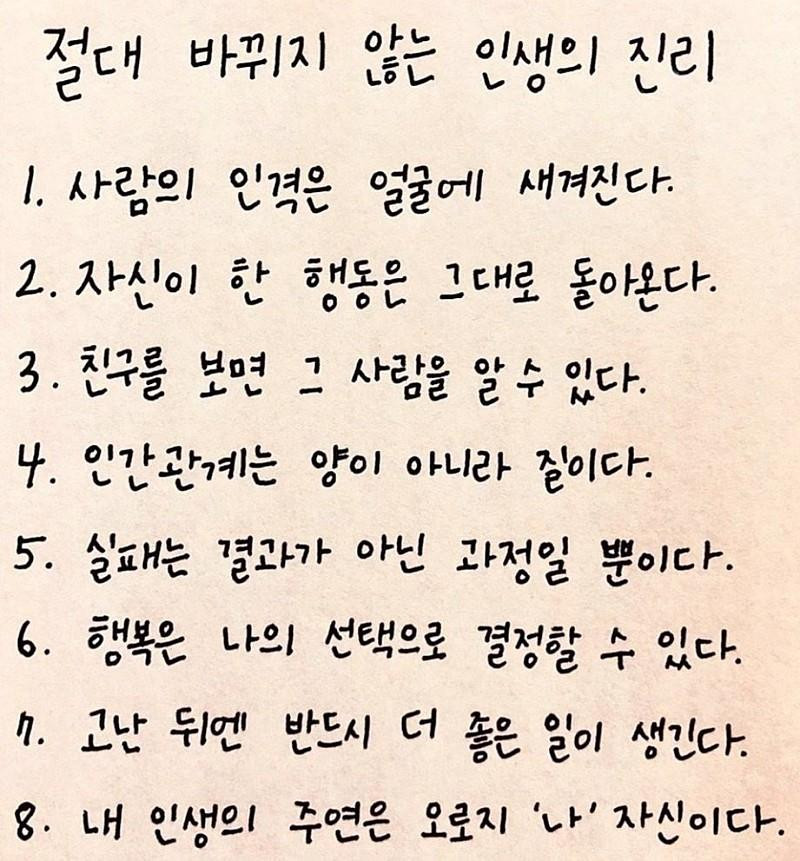 절대 바뀌지 않는 인생의 진리
1. 사람의 인격은 얼굴에 새겨진다.
2. 자신이 한 행동은 그대로 돌아온다.
3. 친구를 보면 그 사람을 알 수 있다.
4. 인간관계는 양이 아니라 질이다.
5. 실패는 결과가 아닌 과정일 뿐이다.
6. 행복은 나의 선택으로 결정할 수 있다.
7. 고난 뒤엔 반드시 더 좋은 일이 생긴다.
8. 내 인생의 주연은 오로지 '나' 자신이다.